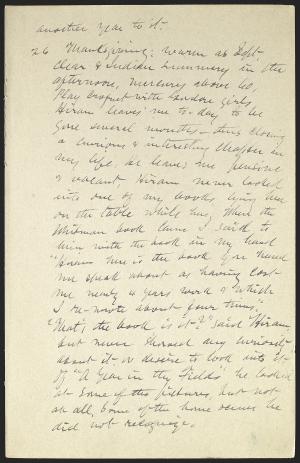 another year to it.
26 Thanksgiving; warm as Sept.
Clear & Indian Summery in the
afternoon, mercury above 60,
Play croquet with Gordon girls
Hiram leaves me to-day to be
gone several months – thus closing
a curious & interesting chapter in
my life, as leaves me pensive
& vacant, Hiram never looked
into one of my books, lying here
on the table while here, When the
Whitman book came I said to
him with the book in my hand
"Hiram here is the book you heard
me speak about as having cost
me nearly 4 years work & which
I re-wrote about four times"
"That's the book is it?" said Hiram,
but never showed any curiosity
about it or desire to look into it.
Of "A Year in the Fields" he looked
at some of the pictures, but not
at all, Some of the home scenes he
did not recognize.